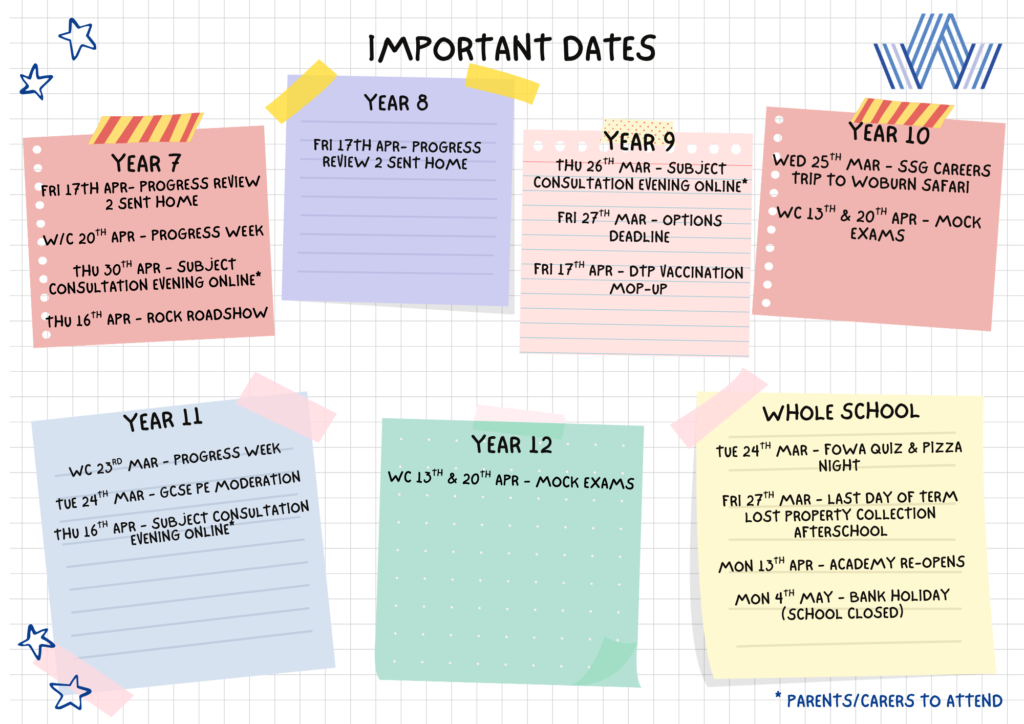 IMPORTANT DATES
YEAR 7
FRI 17TH APR- PROGRESS REVIEW
2 SENT HOME
W/C 20TH APR - PROGRESS WEEK
THU 30TH APR - SUBJECT
CONSULTATION EVENING ONLINE*
THU 16TH APR - ROCK ROADSHOW
YEAR 8
FRI 17TH APR- PROGRESS
REVIEW 2 SENT HOME
YEAR 9
THU 26TH MAR - SUBJECT
CONSULTATION EVENING ONLINE*
FRI 27TH MAR - OPTIONS
DEADLINE
FRI 17TH APR - DTP VACCINATION
MOP-UP
YEAR 10
WED 25TH MAR - SSG CAREERS
TRIP TO WOBURN SAFARI
WC 13TH & 20TH APR - MOCK
EXAMS
YEAR 11
WC 23RD MAR - PROGRESS WEEK
TUE 24TH MAR - GCSE PE MODERATION
THU 16TH APR - SUBJECT CONSULTATION
EVENING ONLINE*
YEAR 12
WC 13TH & 20TH APR - MOCK EXAMS
WHOLE SCHOOL
TUE 24TH MAR - FOWA QUIZ & PIZZA
NIGHT
FRI 27TH MAR - LAST DAY OF TERM
LOST PROPERTY COLLECTION
AFTERSCHOOL
MON 13TH APR - ACADEMY RE-OPENS
MON 4TH MAY - BANK HOLIDAY
(SCHOOL CLOSED)
* PARENTS/CARERS TO ATTEND